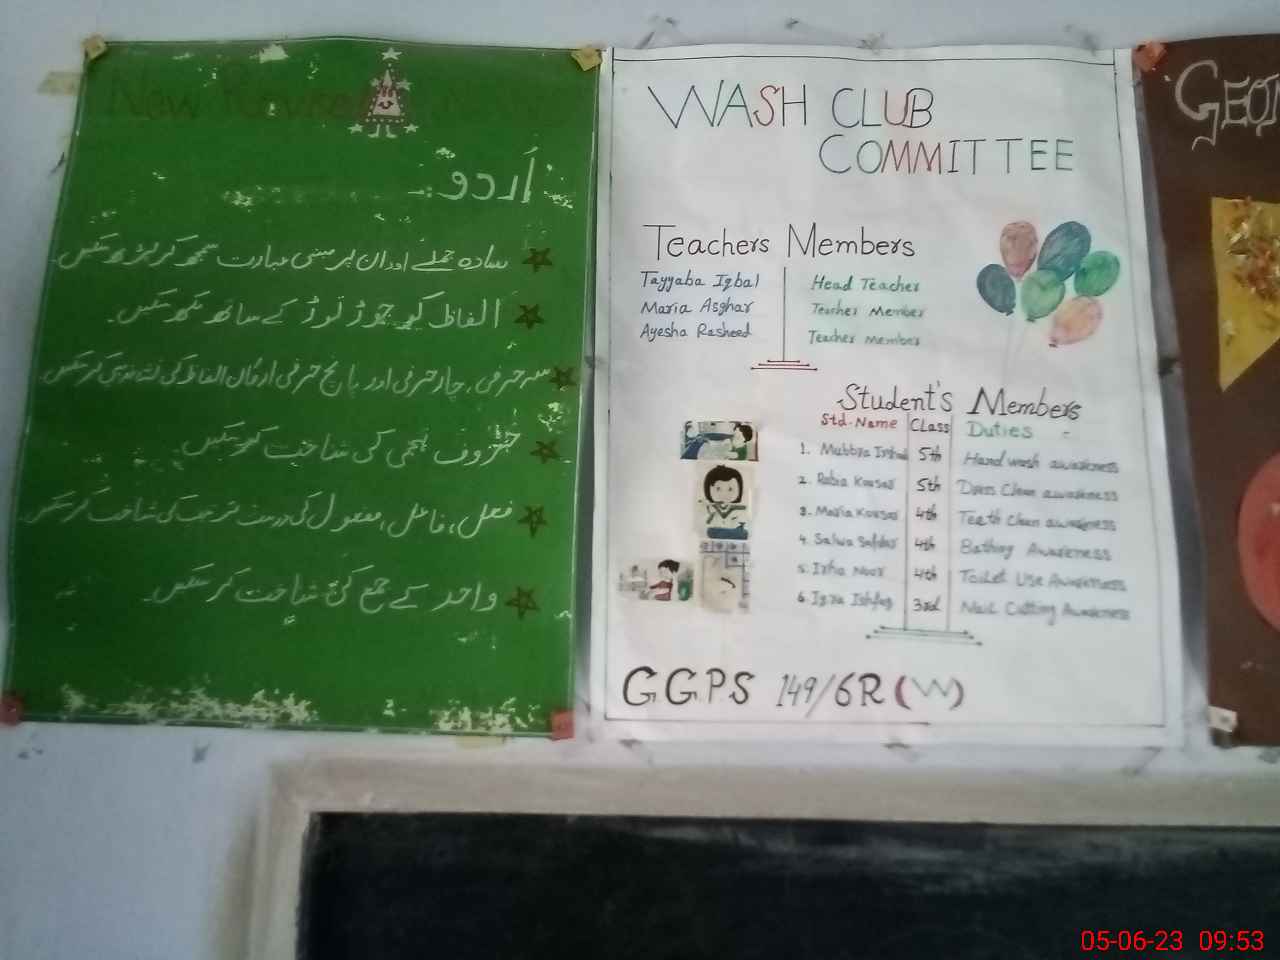 New
اُردو:
سادہ جملے اور ان پر مبنی عبارت سمجھ کر پڑھ سکیں
الفاظ کو جوڑ توڑ کے ساتھ لکھ سکیں۔
سہ حرفی، چار حرفی اور پانچ حرفی ارکان الفاظ کی کر سکیں
حروف تہجی کی شناخت کر سکیں
فعل، فاعل، مفعول کی درست ترتیب کی شناخت کر سکیں
واحد کے جمع کی شناخت کر سکیں۔
WASH CLUB
COMMITTEE
Teachers Members
Tayyaba Iqbal Head Teacher
Maria Asghar Teacher Member
Ayesha Rasheed Teacher Member
Student's Members
Std.Name Class Duties
1. Mubbra 5th Hand wash awareness
2. Rabia Kousar 5th Dress Clean awareness
3. Maria Kousar 4th Teeth Clean awareness
4. Salwa Safdar 4th Bathing Awareness
5. Irha Noor 4th Toilet Use Awareness
6. Iqra Ishfaq 3rd Nail Cutting Awareness
GGPS 149/6R (W)
GEO
05-06-23 09:53